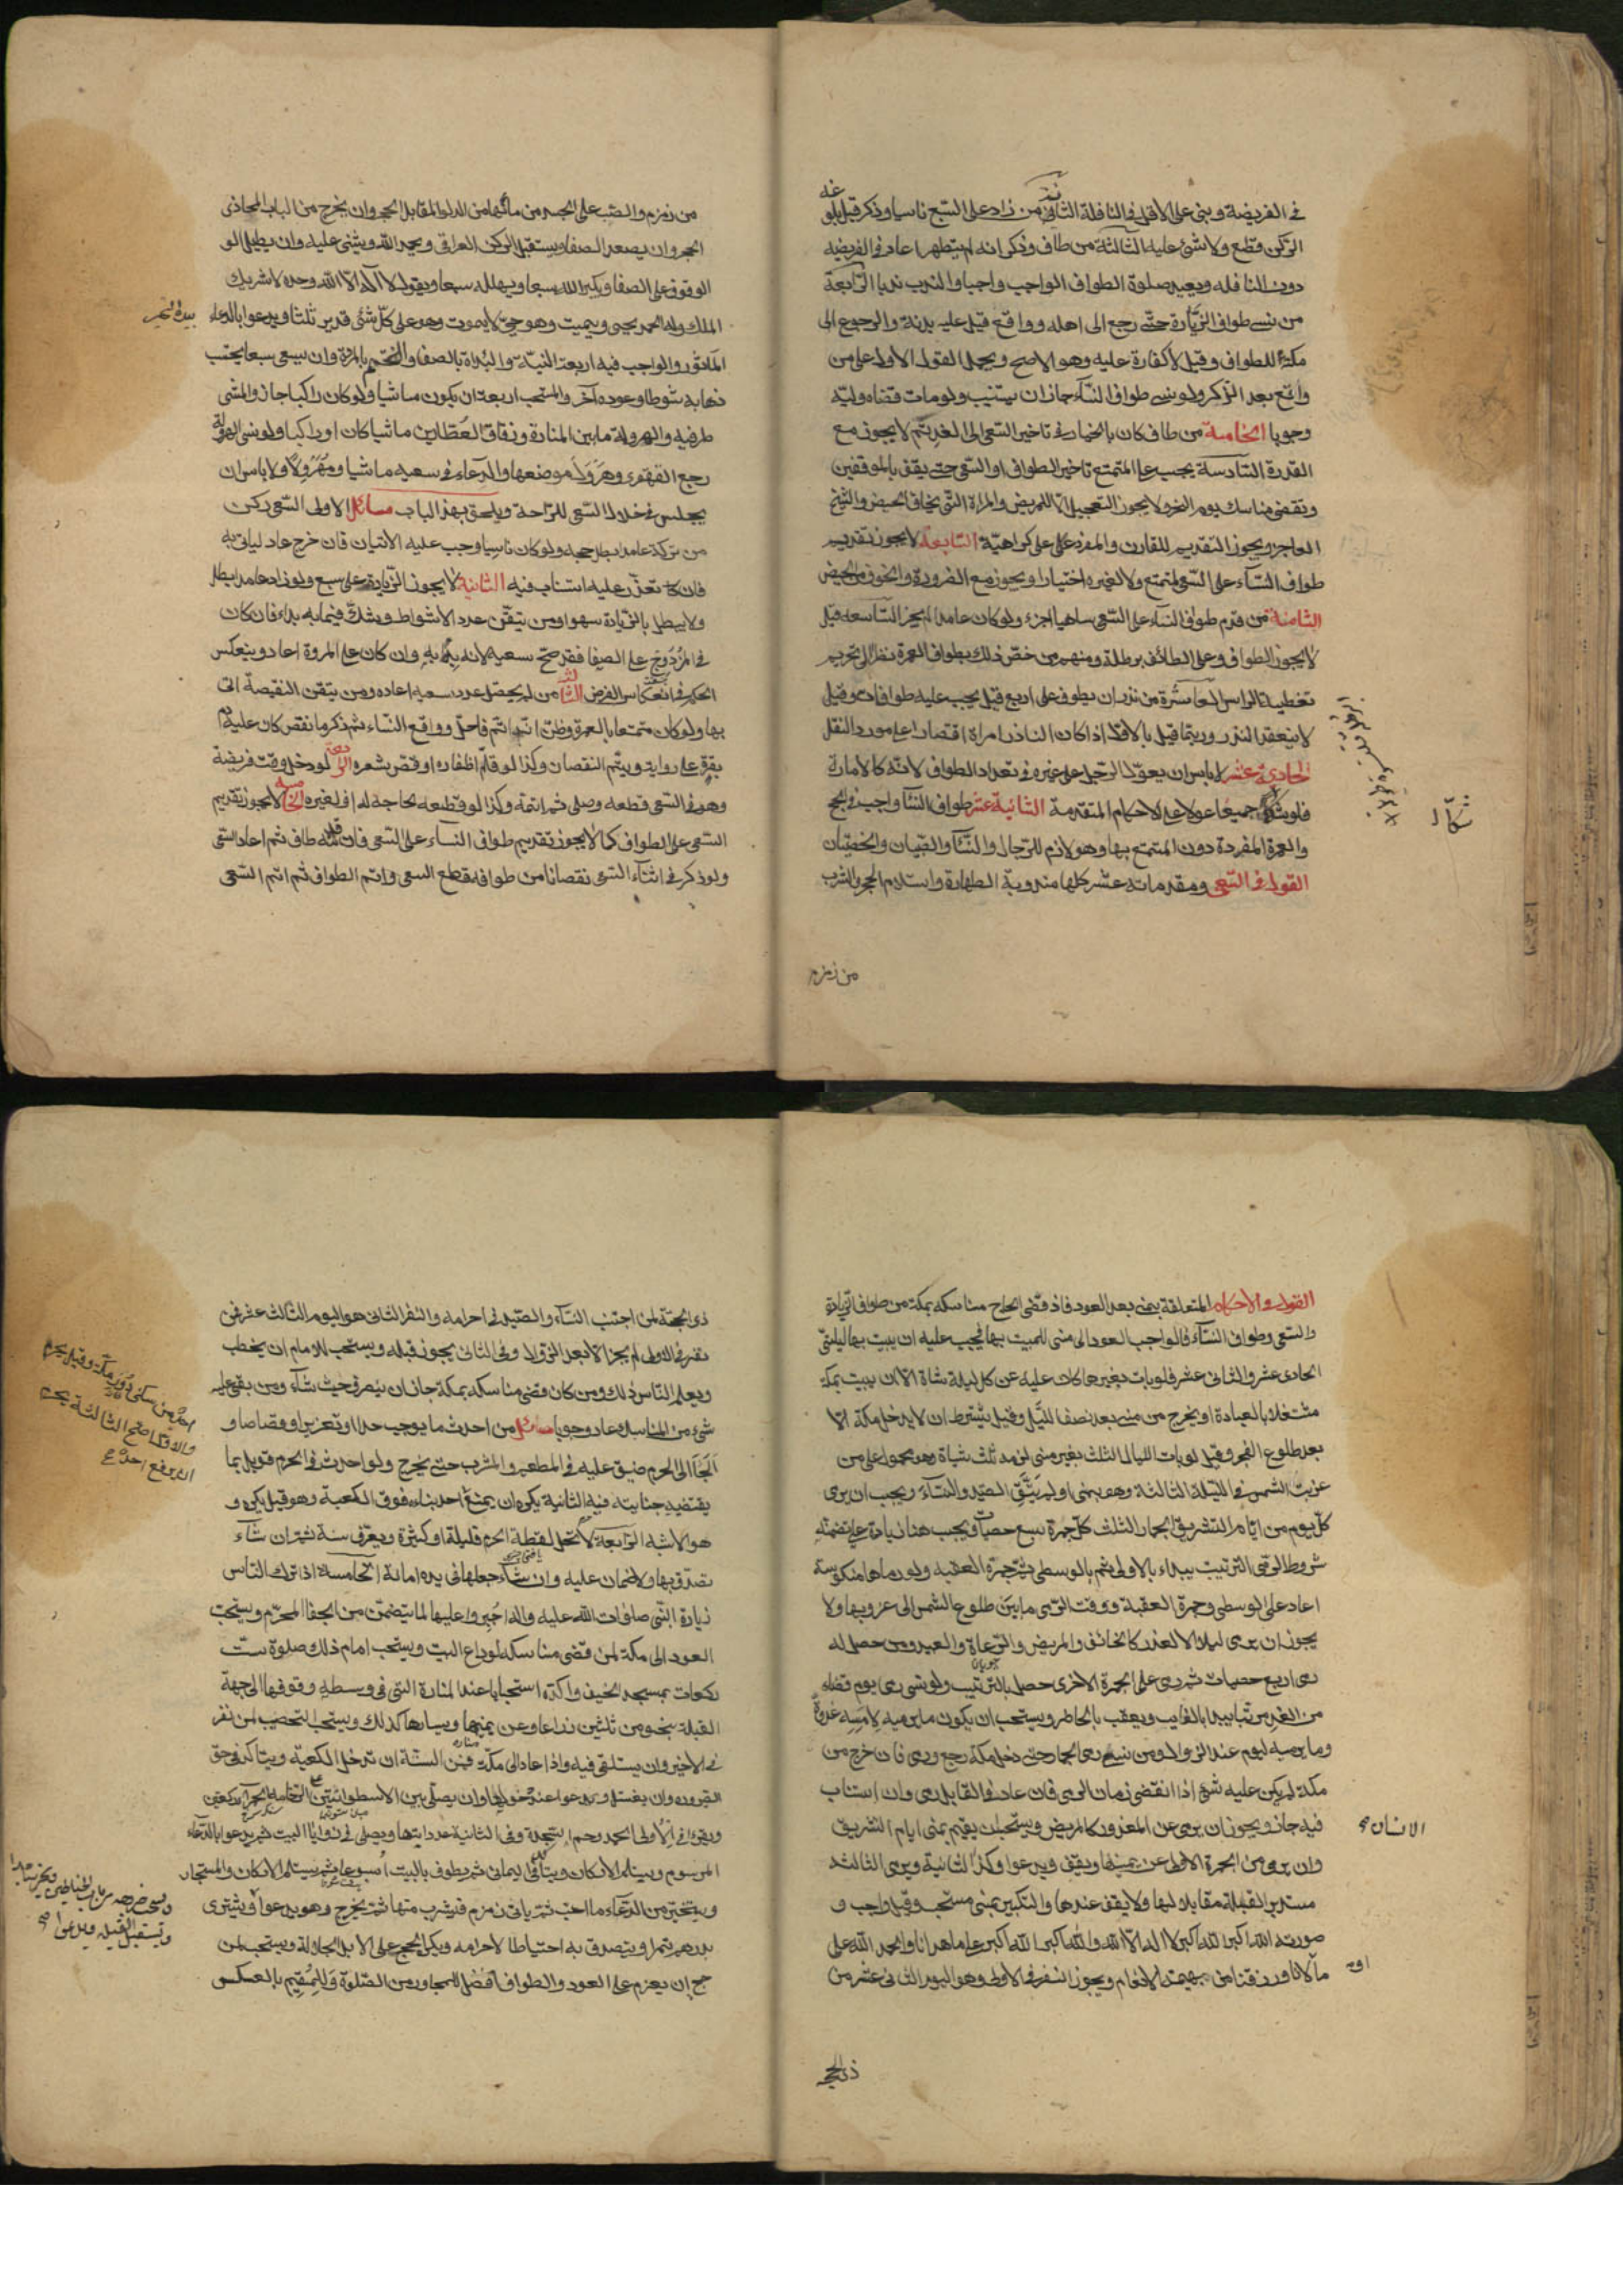 في الفريضة وبنى على الاقل في النافلة الثانية من زاد على السبع ناسيا وذكر قبل بلوغه
الركن قطع ولا شئ عليه الثالثة من طاف وذكر انه لم يتطهر اعاد في الفريضه
دون النافله ويعيد صلوة الطواف الواجب واجبا والندب ندبا الرابعة
من نسى طواف الزيارة حتى رجع الى اهله وواقع قيل عليه بدنة والرجوع الى
مكة للطواف وقيل لا كفارة عليه وهو الاصح ويحمل القول الاول على من
واقع بعد الذكر ولو نسى طواف النساء جاز ان يستنيب ولو مات قضاه وليه
وجوبا الخامسة من طاف كان بالخيار في تاخير السعى الى الغد ثم لا يجوز مع
القدرة السادسة يجب على المتمتع تاخير الطواف والسعى حتى يقف بالموقفين
ويقضى مناسك يوم النحر ولا يجوز التعجيل الا للمريض والمراة التى تخاف الحيض والشيخ
العاجز ويجوز التقديم للقارن والمفرد على كراهية السابعة لا يجوز تقديم
طواف النساء على السعى لمتمتع ولا لغيره اختيارا ويجوز مع الضرورة والخوف من الحيض
الثامنة من قدم طواف النساء على السعى ساهيا اجزء ولو كان عامدا لم يجز التاسعه قيل
لا يجوز الطواف وعلى الطائف برطلة ومنهم من خص ذلك بطواف العمرة نظرا الى تحريم
تغطية الراس العاشرة من نذر ان يطوف على اربع قيل يجب عليه طوافان وقيل
لا ينعقد النذر وربما قيل بالاول اذا كان الناذر امراة اقتصارا على مورد النقل
الحادية عشر لا باس ان يعول الرجل على غيره في تعداد الطواف لانه كالامارة
فلو شكا جميعا عولا على الاحكام المتقدمة الثانية عشر طواف النساء واجب في الحج
والعمرة المفردة دون المتمتع بها وهو لازم للرجال والنساء والصبيان والخصيان
القول في السعى ومقدماته عشر كلها مندوبة الطهارة واستلام الحجر والشرب
من زمزم
من زمزم والصب على الجسد من مائها من الدلو المقابل للحجر وان يخرج من الباب المحاذى
الحجر وان يصعد الصفا ويستقبل الركن العراقى ويحمد الله ويثنى عليه وان يطيل الو
الوقوف على الصفا ويكبر الله سبعا ويهلله سبعا ويقول لا اله الا الله وحده لا شريك
الملك وله الحمد يحيى ويميت وهو حي لا يموت وهو على كل شئ قدير ثلثا ويدعو بالدعاء
بيده الخير
الماثور والواجب فيه اربعة النية والبداة بالصفا والختم بالمروة وان يسعى سبعا يحتسب
ذهابه شوطا وعوده آخر والمستحب اربعة ان يكون ماشيا ولو كان راكبا جاز والمشى
طرفيه والهرولة ما بين المنارة وزقاق العطارين ماشيا كان او راكبا ولو نسى الهرولة
رجع القهقرى وهرول موضعها والدعاء في سعيه ماشيا ومهرولا ولا باس ان
يجلس في خلال السعى للراحة ويلحق بهذا الباب مسائل الاولى السعى ركن
من تركه عامدا بطل حجه ولو كان ناسيا وجب عليه الاتيان فان خرج عاد لياتى به
فان تعذر عليه استناب فيه الثانية لا يجوز الزيادة على سبع ولو زاد عامدا بطل
ولا يبطل بالزيادة سهوا ومن تيقن عدد الاشواط وشك فيما به بداء فان كان
في المزدوج على الصفا فقد صح سعيه لانه بداء به وان كان على المروة اعاد وينعكس
الحكم في انعكاس الفرض الثالثة من لم يحصل عدد سعيه اعاده ومن تيقن النقيصة اتى
بها ولو كان متمتعا بالعمرة وظن انه اتم فاحل وواقع النساء ثم ذكر ما نقص كان عليه دم
بقرة على رواية ويتم النقصان وكذا لو قلم اظفاره او قص شعره الرابعة لو دخل وقت فريضة
وهو في السعى قطعه وصلى ثم اتمه وكذا لو قطعه لحاجة له او لغيره الخامسة لا يجوز تقديم
السعى على الطواف كما لا يجوز تقديم طواف النساء على السعى فان قدمه طاف ثم اعاد السعى
ولو ذكر في اثناء السعى نقصانا من طوافه قطع السعى واتم الطواف ثم اتم السعى
القول في الاحكام المتعلقة بمنى بعد العود فاذا قضى الحاج مناسكه بمكة من طواف الزيارة
والسعى وطواف النساء فالواجب العود الى منى للمبيت بها فيجب عليه ان يبيت بها ليلتى
الحادى عشر والثانى عشر فلو بات بغيرها كان عليه عن كل ليلة شاة الا ان يبيت بمكة
مشتغلا بالعبادة او يخرج من منى بعد نصف الليل وقيل يشترط ان لا يدخل مكة الا
بعد طلوع الفجر وقيل لو بات الليالى الثلث بغير منى لزمه ثلث شياة وهو محمول على من
غربت الشمس في الليلة الثالثة وهو بمنى او لم يتق الصيد والنساء ويجب ان يرمى
كل يوم من ايام التشريق الجمار الثلث كل جمرة سبع حصيات ويجب هنا زيادة على ما تضمنه
شروط الرمى الترتيب يبداء بالاولى ثم بالوسطى ثم جمرة العقبه ولو رماها منكوسة
اعاد على الوسطى وجمرة العقبة ووقت الرمى ما بين طلوع الشمس الى غروبها ولا
يجوز ان يرمى ليلا الا لعذر كالخائف والمريض والرعاة والعبيد ومن حصل له
رمى اربع حصيات ثم رمى على الجمرة الاخرى حصل بالترتيب ولو نسى رمى يوم قضاه
من الغد مرتبا يبدا بالفايت ويعقب بالحاضر ويستحب ان يكون ما يرميه لامسه غدوة
وما يرميه ليومه عند الزوال ومن نسى رمى الجمار حتى دخل مكة رجع ورمى فان خرج من
مكة لم يكن عليه شئ اذا انقضى زمان الرمى فان عاد في القابل رمى وان استناب
فيه جاز ويجوز ان يرمى عن المعذور كالمريض ويستحب ان يقيم بمنى ايام التشريق
الانسان
وان يرمى من الجمرة الاولى عن يمينه ويقف ويدعو وكذا الثانية ويرمى الثالثة
مستدبر القبلة مقابلا لها ولا يقف عندها والتكبير بمنى مستحب وقيل واجب و
صورته الله اكبر الله اكبر لا اله الا الله والله اكبر الله اكبر على ما هدانا والحمد الله على
ما اولانا ورزقنا من بهيمة الانعام ويجوز النفر في الاول وهو اليوم الثانى عشر من
ذى الحجة
ذى الحجة لمن اجتنب النساء والصيد في احرامه والنفر الثانى هو اليوم الثالث عشر فمن
نفر في الاول لم يجز الا بعد الزوال وفى الثانى يجوز قبله ويستحب للامام ان يخطب
ويعلم الناس ذلك ومن كان قضى مناسكه بمكة جاز ان ينصرف حيث شاء ومن بقى عليه
شئ من المناسك عاد وجوبا مسائل من احدث ما يوجب حدا او تعزيرا او قصاصا و
الجا الى الحرم ضيق عليه في المطعم والمشرب حتى يخرج ولو احدث في الحرم قوبل بما
يقتضيه جنايته فيه الثانية يكره ان يمنع احد
بناء فوق الكعبة وهو قيل يكره و
هو الاشبه الرابعة لا تحل لقطة الحرم قليلة او كثيرة ويعرف سنة ثم ان شاء
تصدق بها ولا ضمان عليه وان شاء جعلها فى يده امانة الخامسة اذا ترك الناس
زيارة النبى صلوات الله عليه واله اجبروا عليها لما يتضمن من الجفا المحرم ويستحب
العود الى مكة لمن قضى مناسكه لوداع البيت ويستحب امام ذلك صلوة ست
ركعات بمسجد الخيف واكده استحبابا عند المنارة التى في وسطه وفوقها الى جهة
القبلة بنحو من ثلثين ذراعا وعن يمينها ويسارها كذلك ويستحب التحصيب لمن نفر
في الاخير وان يستلقى فيه واذا عاد الى مكة فمن السنة ان تدخل الكعبة ويتاكد في حق
الضرورة وان يغتسل ويدعو عند دخولها وان يصلى بين الاسطوانتين على الرخامة الحمراء ركعتين
ويقرا في الاولى الحمد وحم السجدة وفى الثانية عدد ايتها ويصلى في زوايا البيت ثم يدعو بالدعاء
المرسوم ويستلم الاركان ويتاكد في اليمانى ثم يطوف بالبيت اسبوعا ثم يستلم الاركان والمستجار
ويتخير من الدعاء ما احب ثم ياتى زمزم فيشرب منها ثم يخرج وهو يدعو ويشترى
بدرهم تمرا ويتصدق به احتياطا لاحرامه ويكره الحج على الابل الجلالة ويستحب لمن
حج ان يعزم على العود والطواف افضل للمجاور من الصلوة وللمقيم بالعكس
احدا من سكنى دور مكة وقيل يحرم
والاول اصح الثالثة يحرم
ان يرفع احد